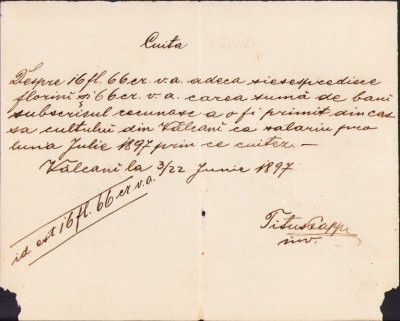 Cuita
Despre 16 fl. 66 cr. v. a. adeca siesesprediece
florini si 66 cr. v. a. carea sumă de bani
subscrisul recunosc a o fi primit din cas
sa cultului din Vălcani ca salariu pro
luna Julie 1897 prin ce cuitez. —
Vălcani la 3/22 Junie 1897
id est 16 fl. 66 cr. v. a.
Titus
inv.